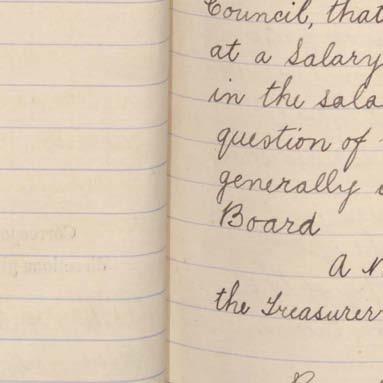 Council, that
at a Salary
in the sala
question of
generally
Board
A
the Treasurer